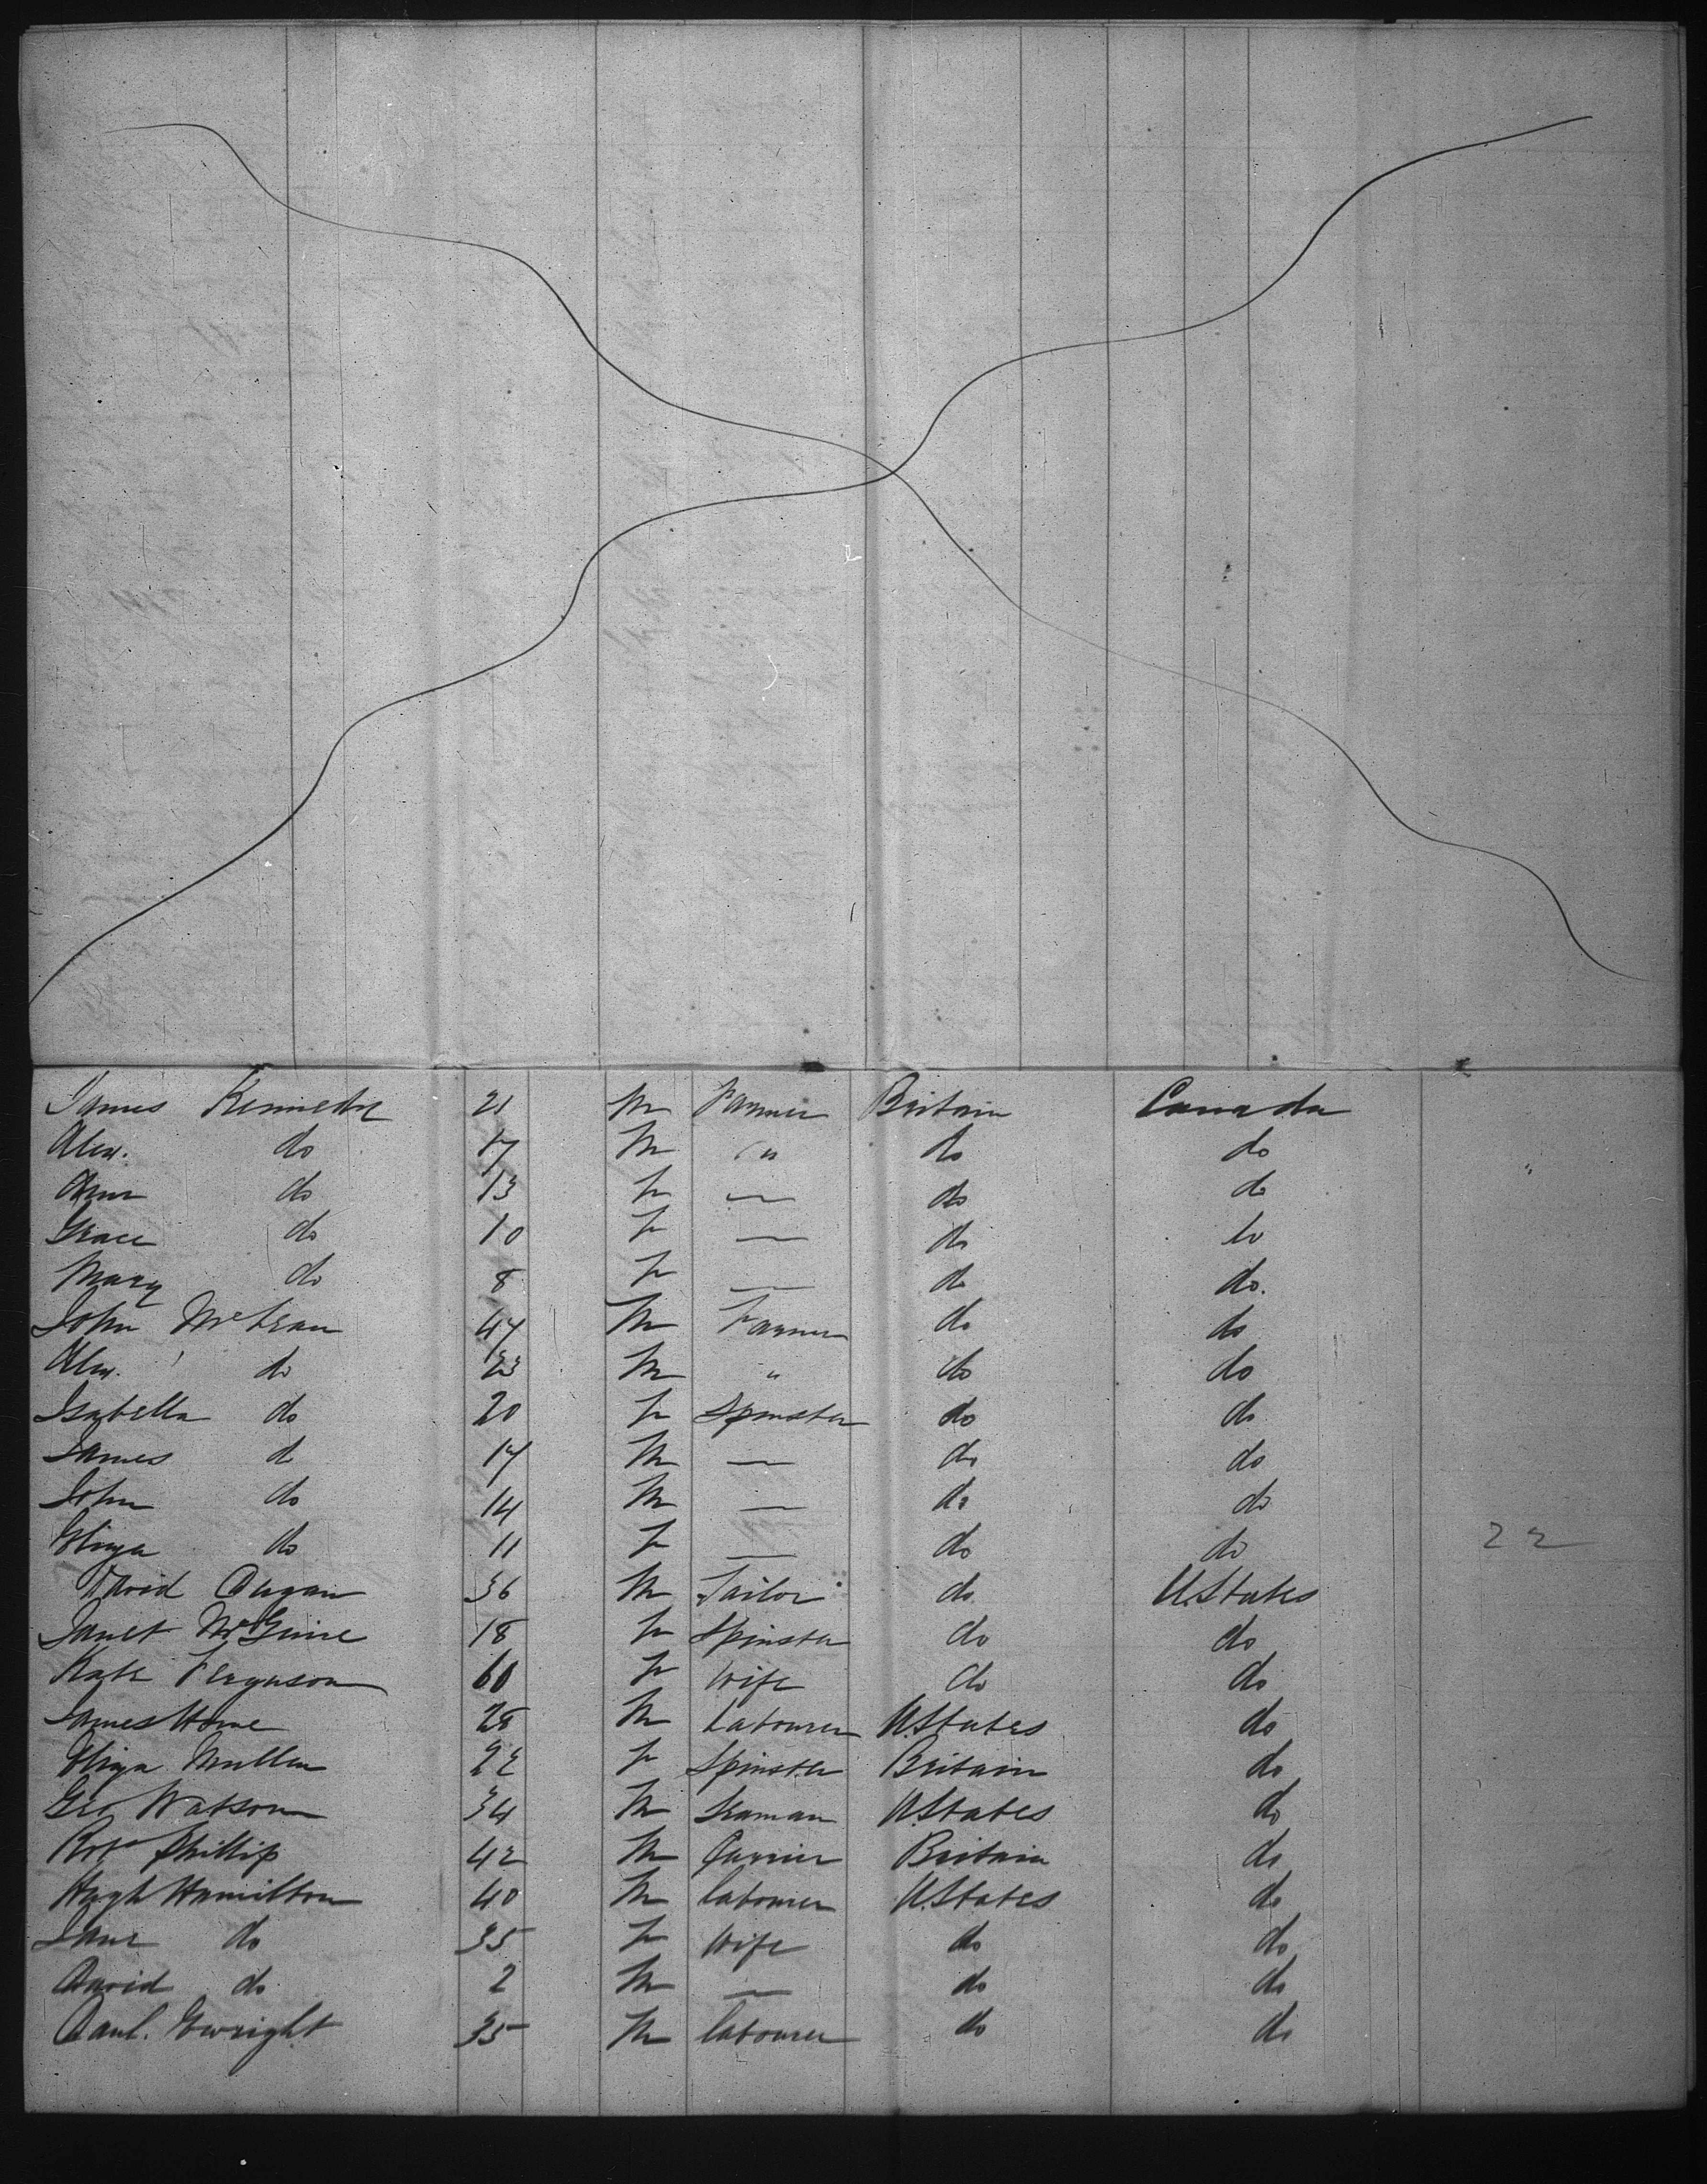 James Kennedy 21 M Farmer Britain Canada
Alex. do 17 M " do do
Ann do 13 F — do do
Grace do 10 F — do do
Mary do 8 F — do do.
John McLean 47 M Farmer do do
Alex. do 23 M " do do
Isabella do 20 F Spinster do do
James do 17 M — do do
John do 14 M — do do
Eliza do 11 F — do do
22
David Dugan 36 M Tailor do U.States
Janet McGuire 18 F Spinster do do
Kate Ferguson 60 F Wife do do
James Howe 28 M Labourer U.States do
Eliza Mullen 22 F Spinster Britain do
Geo Watson 34 M Seaman U.States do
Robt Phillip 42 M Currier Britain do
Hugh Hamilton 40 M labourer U.States do
Jane do 35 F Wife do do
David do 2 M — do do
Danl. 35 M labourer do do